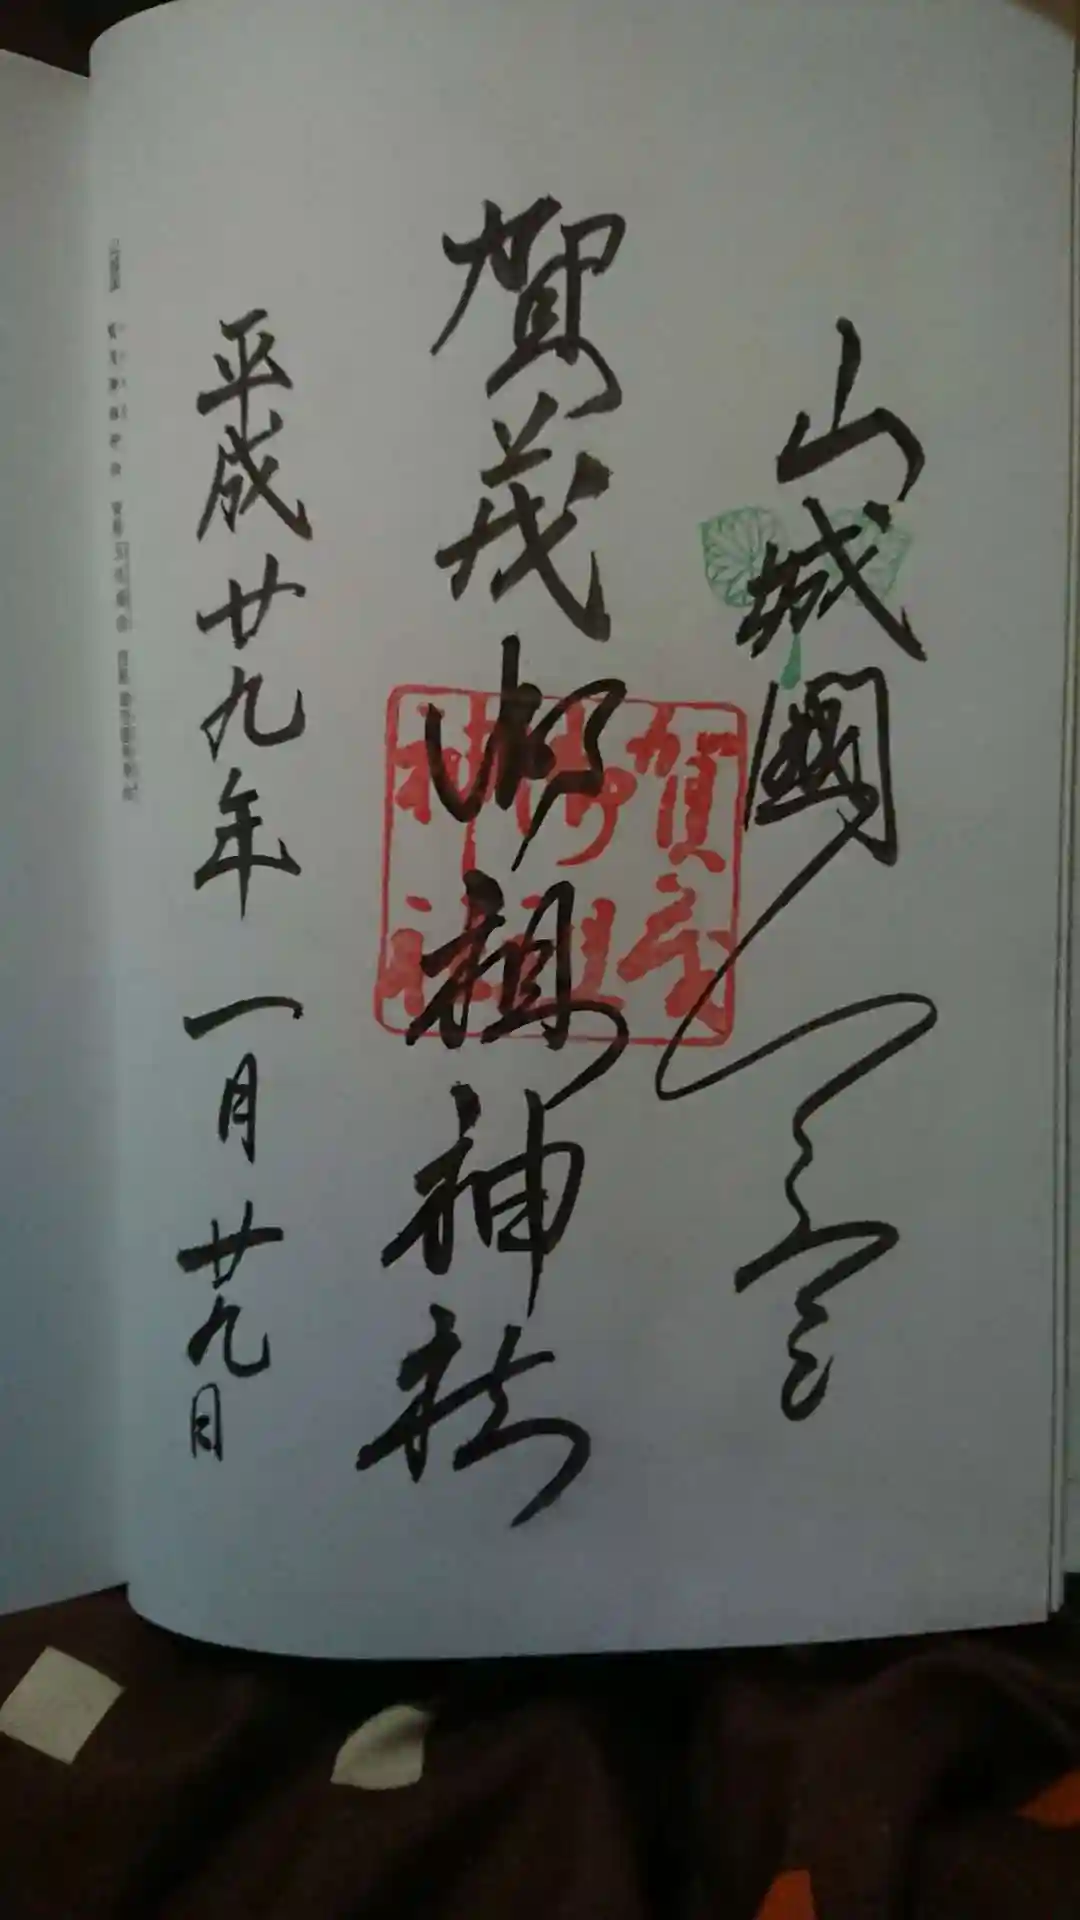 山城國一宮
賀茂御祖神社
賀茂
御祖
神社
平成廿九年 一月廿九日